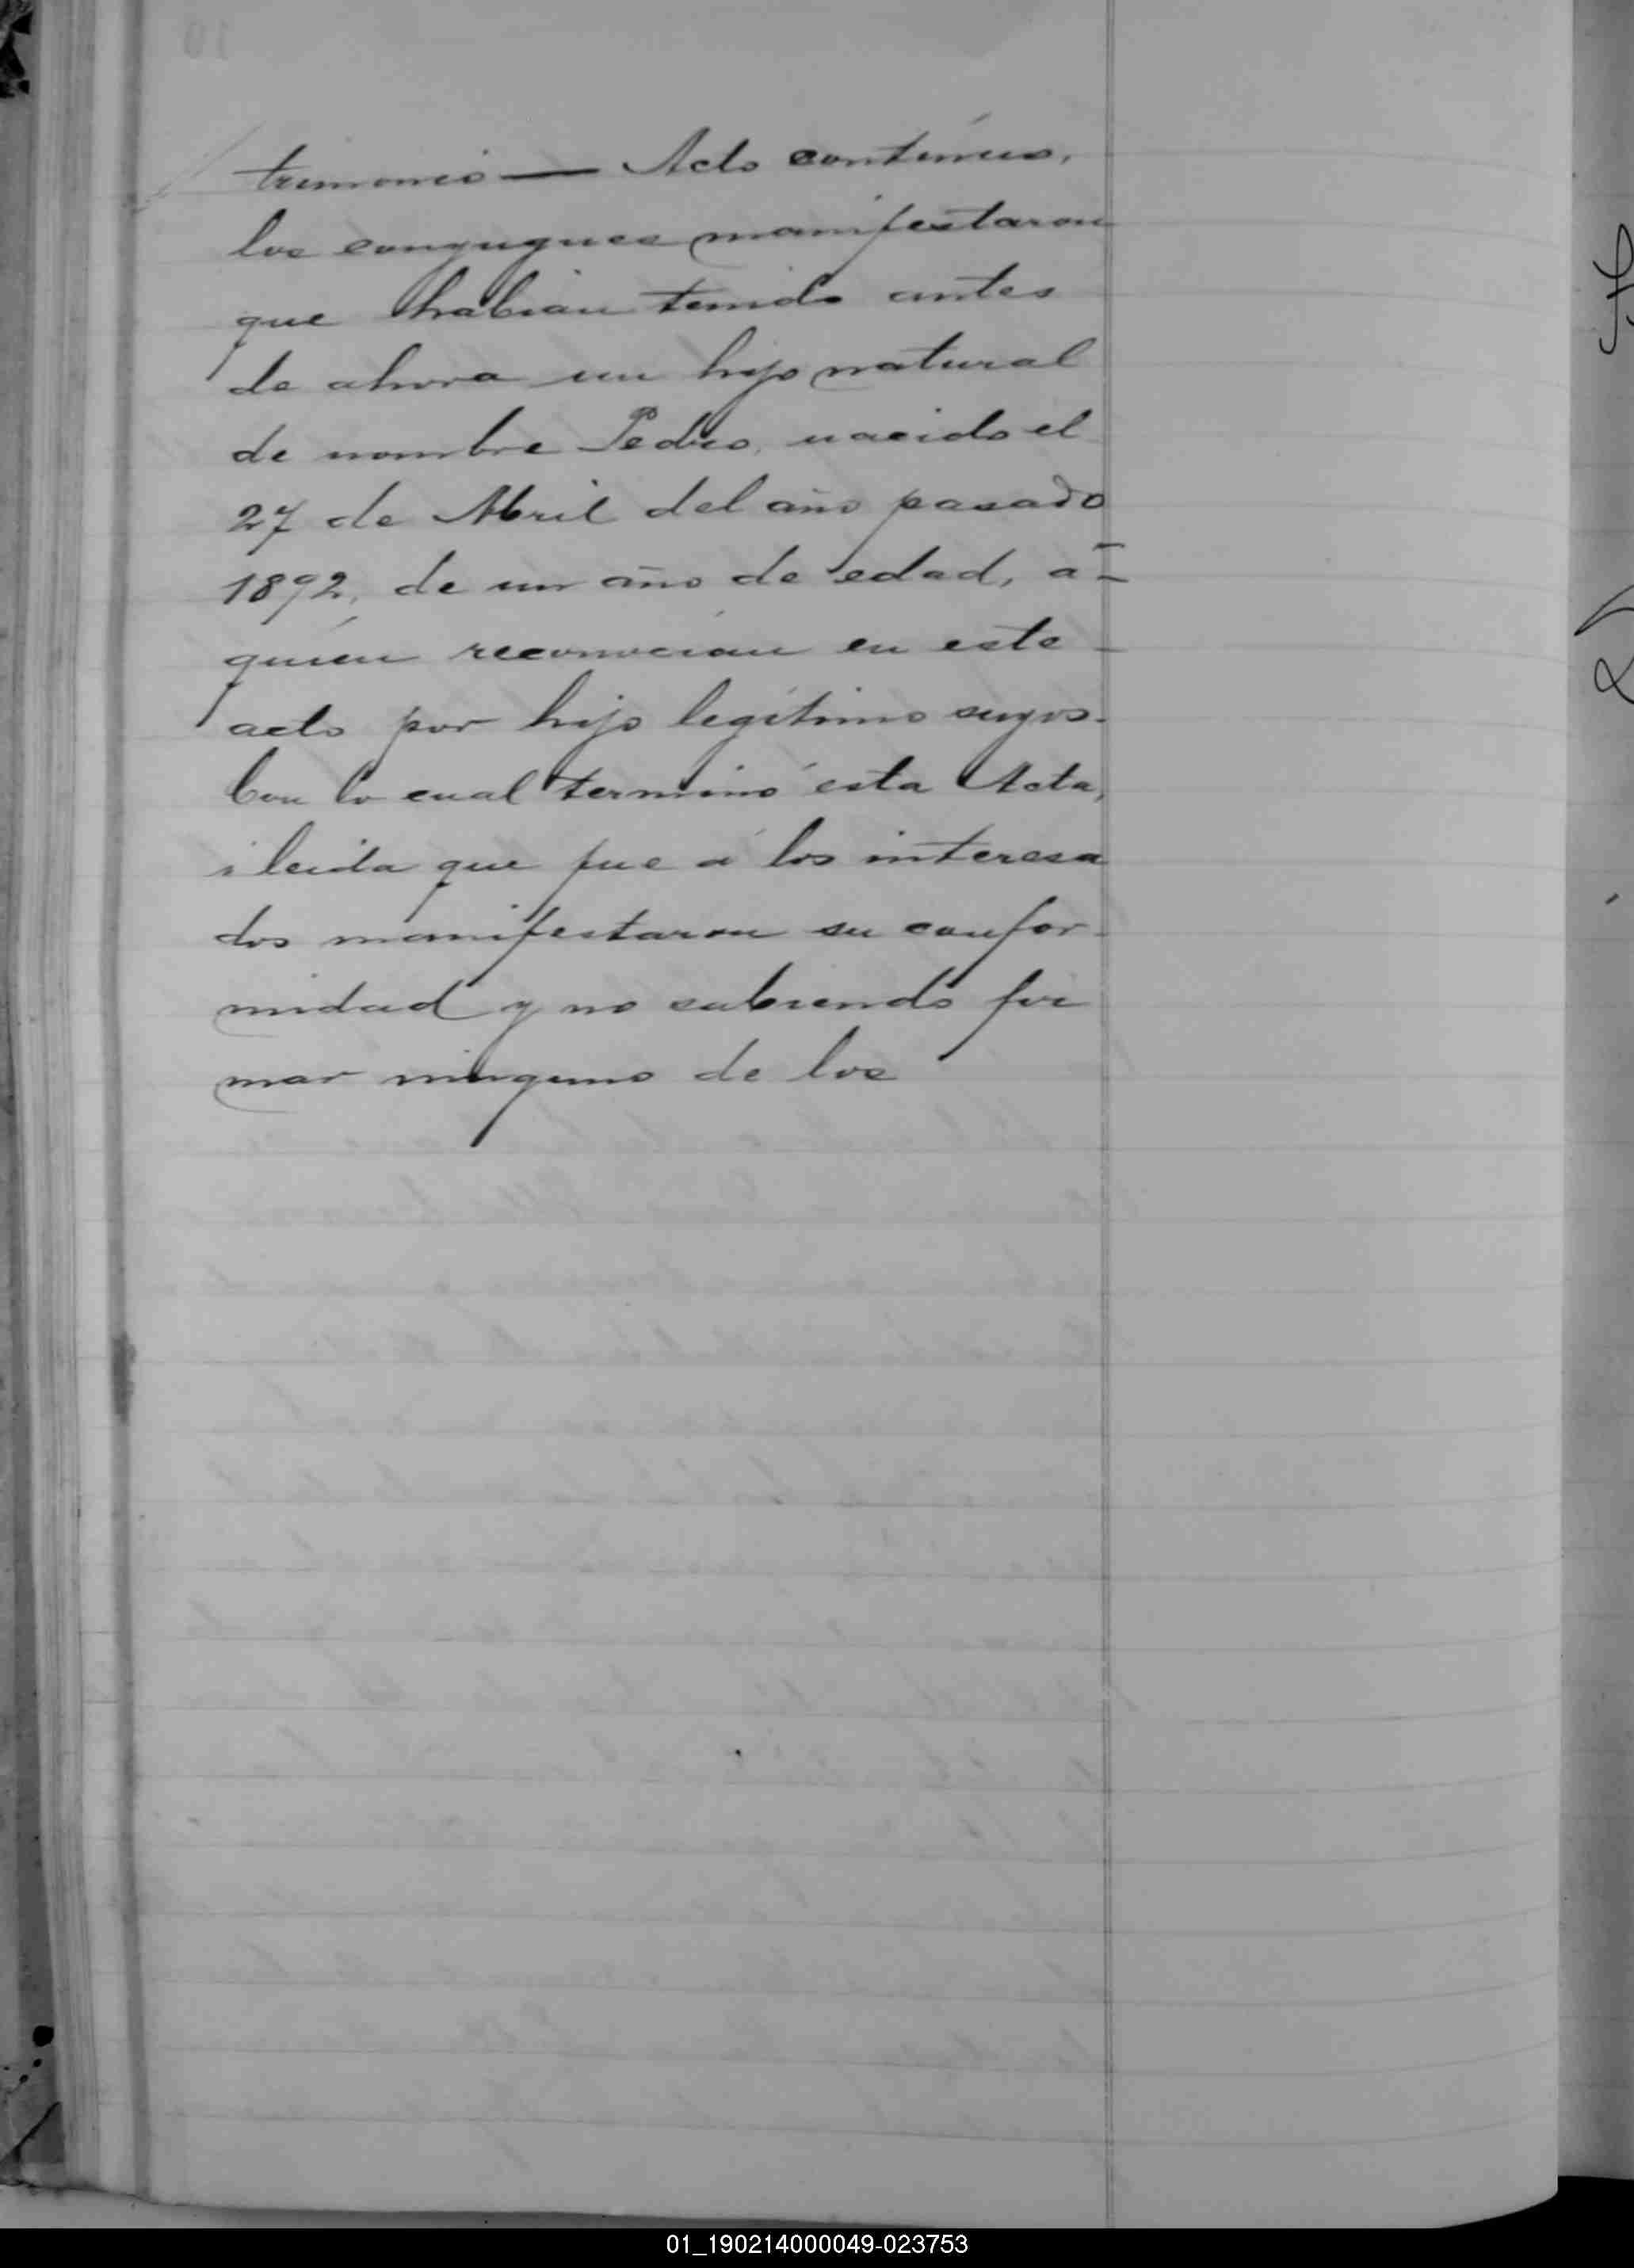 trimonio — Acto contínuo,
los conyugues manifestaron
que habian tenido antes
de ahora un hijo natural
de nombre Pedro, nacido el
27 de Abril del año pasado
1892, de un año de edad, a=
quién reconocían en este -
acto por hijo legítimo suyos.
Con lo cual terminó esta Acta,
i leida que fue á los interesa
dos manifestaron su confor-
midad y no sabiendo fir
mar ninguno de los
01_190214000049-023753